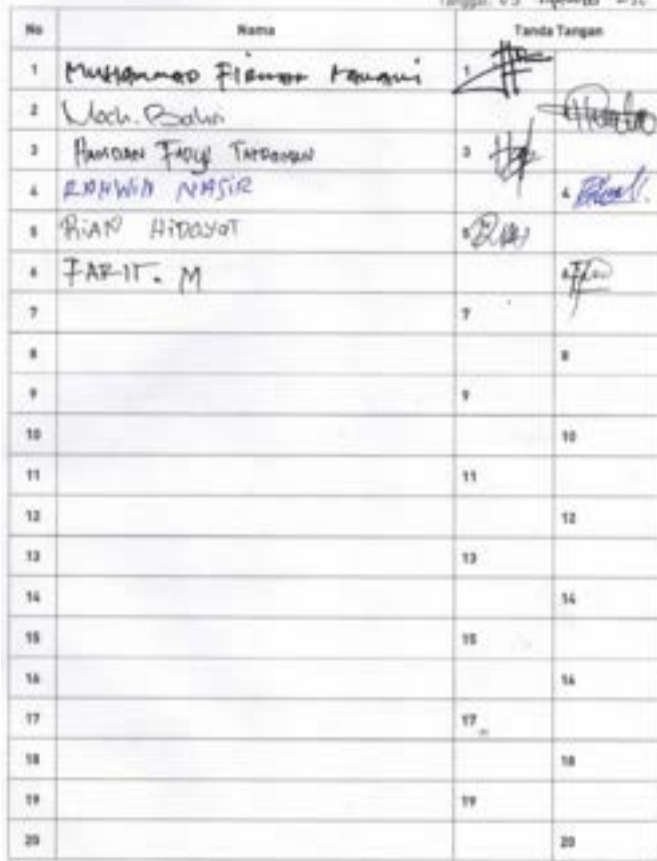 Tanggal: 03
No Nama Tanda Tangan
1 MUHAMMAD 1
2 Moch. Bahri
3 HAMDAN 3
4 RAHWIN NASIR 4
5 RIAN HIDAYAT 5
6 FARIT. M 6
7 7
8 8
9 9
10 10
11 11
12 12
13 13
14 14
15 15
16 16
17 17
18 18
19 19
20 20